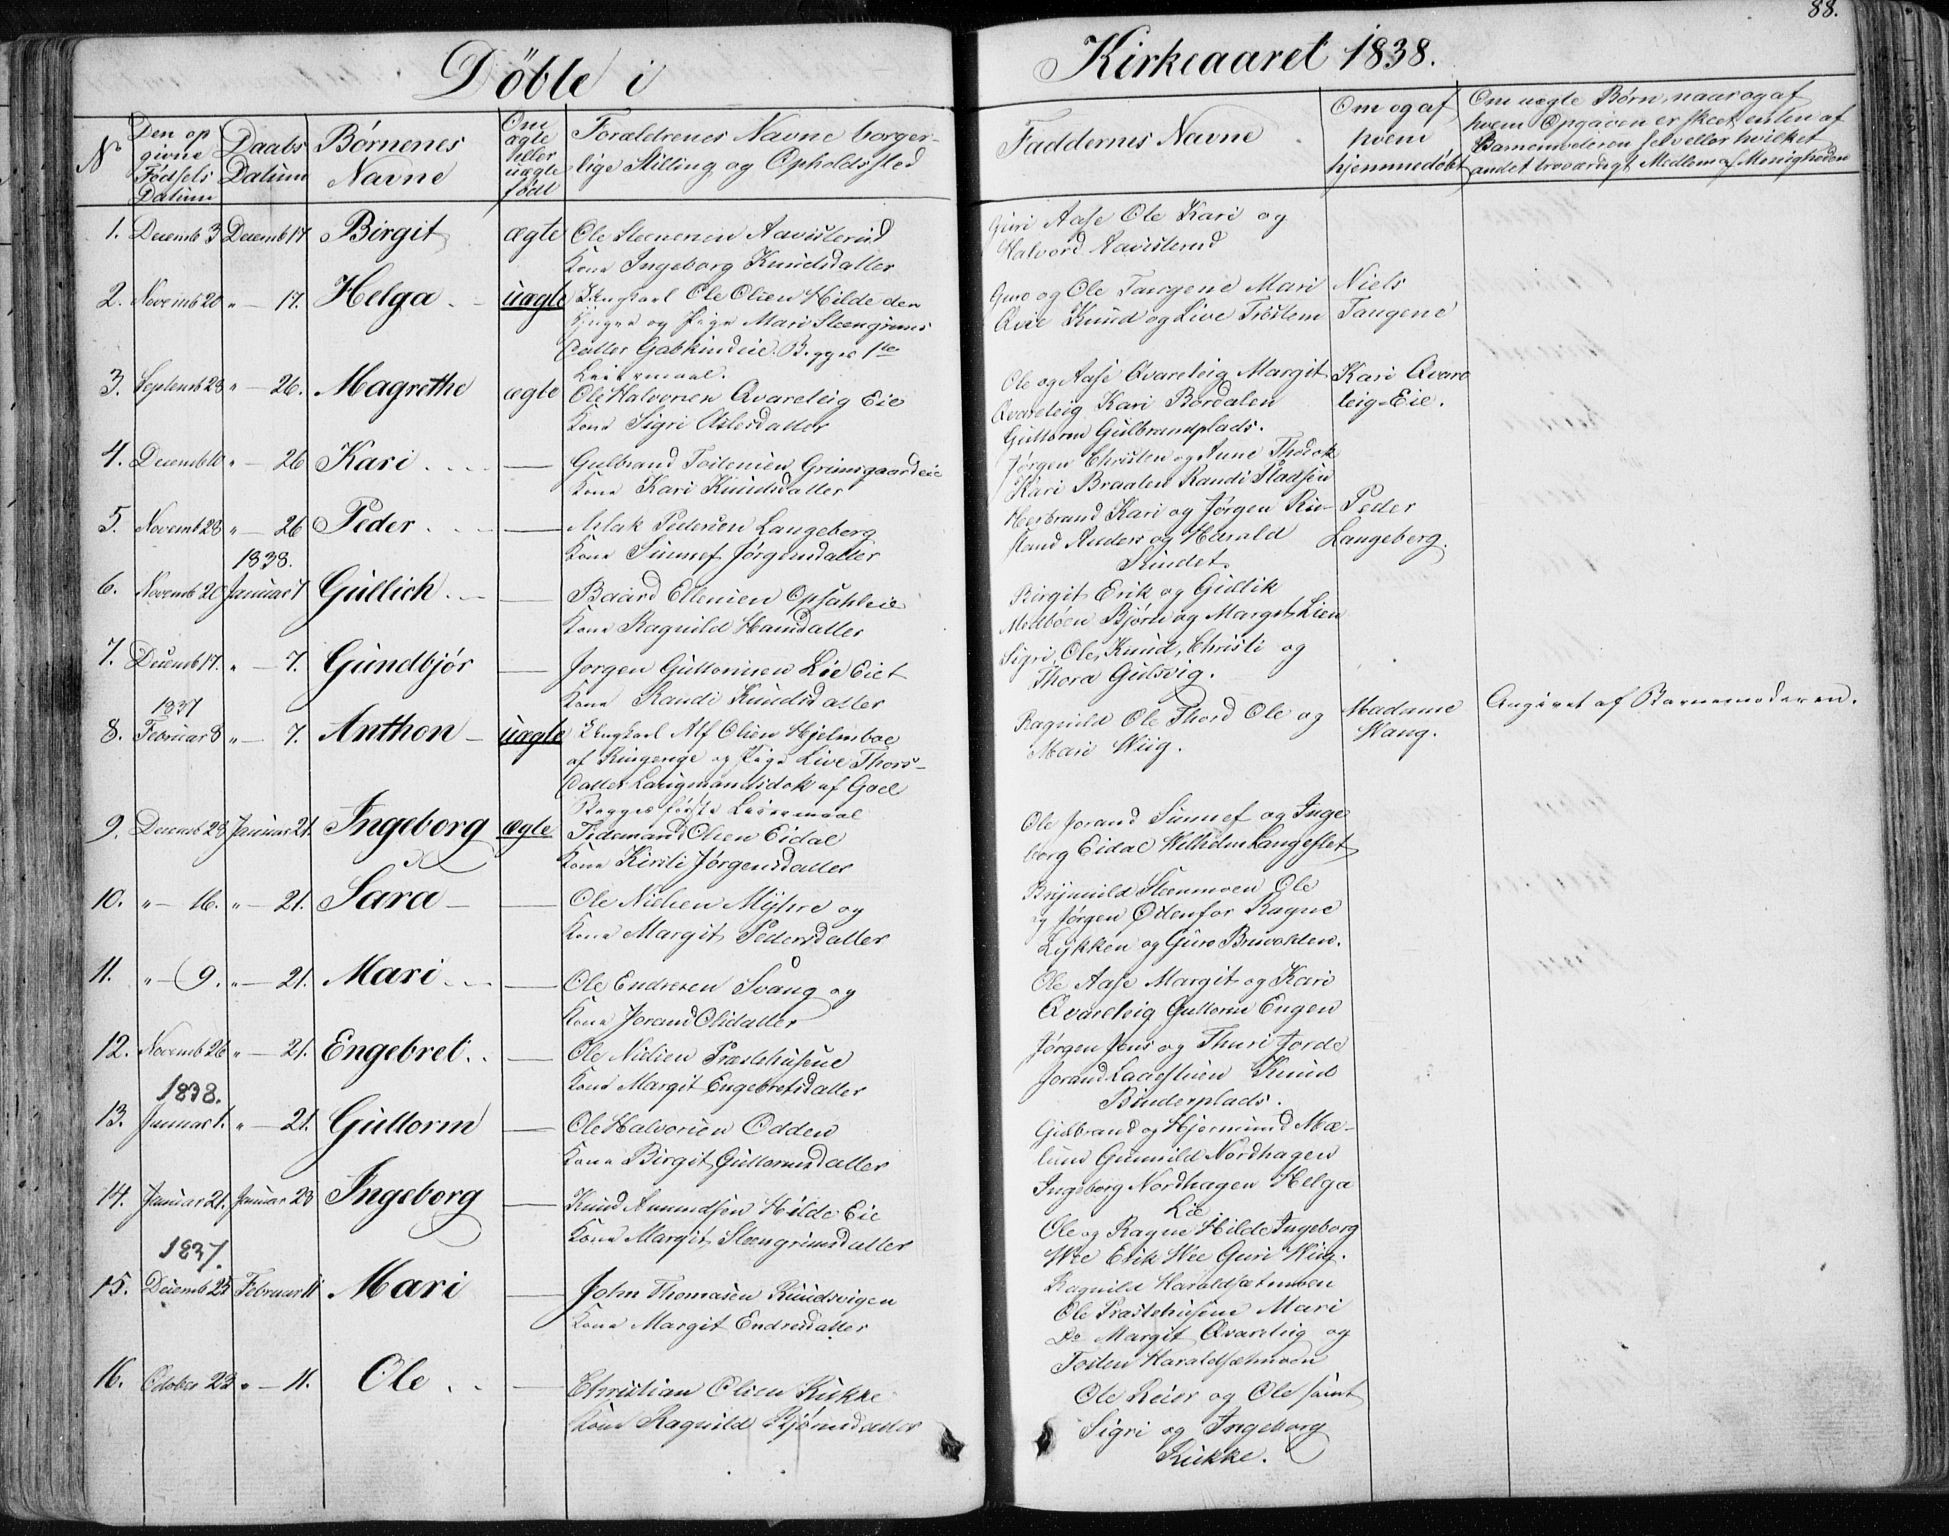 88.
Döbte i Kirkeaaret 1838.
No
Den op
givne
Fødsels
Datum
Daabs
Datum
Børnenes
Navne
Om
ægte
eller
uægte
født
Forældrenes Navne borger-
lige Stilling og Opholdssted
Faddernes Navne
Om og af
hvem
hjemmedøbt
Om uægte Børn, naar og af
hvem Opgaven er skeet enten af
Barnemoderen selv eller hvilket
andet troværdigt Medlem af Menigheden
1. Decemb 3 Decemb 17 Birgit ægte Ole Steenersen Aavisterud
Kone Ingeborg Knudsdatter
Guri Aase Ole Kari og
Halvord Aavisterud
2. Novemb 20 " — 17. Helga uægte Ungkarl Ole Olsen Hilde den
Yngre og Pige Mari Steengrims
datter Begges 1ste
Leiermaal.
Guro og Ole Tangene Mari
Qvie Knud og Live Trostem
Niels
Tangene
3. Septemb 28 " — 26. Magrethe ægte Ole Halvorsen Qvarelvig Eie
Kone Sigri Aslesdatter
Ole og Aase Qvarelvig Margit
Qvarelvig Kari Bordalen
Guttorm Gulbrandplads.
Kari Qvare
leig-Eie.
4. Decemb 10 " — 26 Kari — Gulbrand Tostensen Grimsgaardeie
Kone Kari Knudsdatter
Jørgen Christen og Anne Thodok
Kari Braaten Randi Stadsen
5. Novemb 28 " — 26 Peder — Aslak Pedersen Langeberg
Kone Sünnef Jørgensdatter
Herbrand Kari og Jørgen Ru-
stand Anders og Harald
Sundet.
Peder
Langeberg.
1838.
6. Novemb 20 Januar 7 Gullich — Baard Ellensen Opsahleie
Kone Ragnild Hansdatter
Birgit Erik og Gullik
Moebøen Bjørn og Margit Lien
7. Decemb 17. " — 7. Gundbjør — Jørgen Guttormsen Lie Eiet
Kone Randi Knudsdatter
Sigri, Ole, Knud, Christi og
Thora Gulsvig.
1837
8. Februar 8 " — 7. Anthon — uægte Ungkarl Alf Olsen Hjelmboe
af Ringerige og Pige Live Thors-
datter Langmandsdok af Goel
Begges første Leiermaal
Ragnild Ole Thord Ole og
Mari Wiig.
Madame
Kang.
Angivet af Barnemoderen.
9. Decemb 28 Januar 21. Ingeborg ægte Tidemand Olsen Eidal
Kone Kirsti Jørgensdatter
Ole Jorand Sünnef og Inge
borg Eidal Wilhelm Langeslet
10. " — 16. " — 21. Sara — Ole Nielsen Myhre og
Kone Margit Pedersdatter
Brynild Steenmoen Ole
og Jørgen Odenfor Ragne
Lykken og Guro Bruvolden.
11. " — 9. " — 21. Mari — Ole Endresen Svang og
Kone Jorand Olsdatter
Ole Aase Margit og Kari
Qvarelvig Guttorm Engen
12. Novemb 26 " — 21. Engebret — Ole Nielsen Præstehusene
Kone Margit Engebretsdatter
Jørgen Jens og Thuri Jorde
Jorand Laaestuen Knud
Binderplads.
1838.
13. Januar 1. " — 21. Guttorm — Ole Halvorsen Odden
Kone Birgit Guttormsdatter
Gulbrand og Hjermund Mæ-
lum Gunnild Nordhagen
Ingeborg Nordhagen Helga
Lie
14. Januar 21. Januar 23 Ingeborg — Knud Amundsen Hilde Eie
Kone Margit Steengrimsdatter
Ole og Ragne Hilde Ingeborg
Wee Erik Wee Guri Wiig.
1837.
15. Decemb 25 Februar 11 Mari — John Thomasen Ruudsvigen
Kone Margit Endresdatter
Ragnild Haraldsætmoen
Ole Præstehusene Mari
Do Margit Qvarelvig og
Tosten Haraldsætmoen
16. October 22 " — 11. Ole — Christian Olsen Kukke
Kone Ragnild Bjørnsdatter
Ole Reier og Ole samt
Sigri og Ingeborg
Kukke.